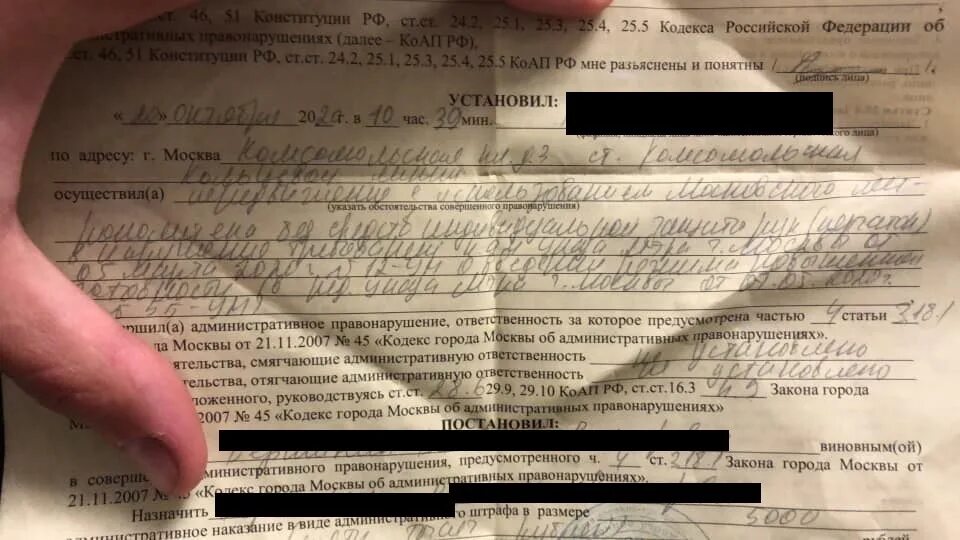 ст. 46, 51 Конституции РФ, ст.ст. 24.2, 25.1, 25.3, 25.4, 25.5 Кодекса Российской Федерации об
административных правонарушениях (далее – КоАП РФ),
ст. 46, 51 Конституции РФ, ст.ст. 24.2, 25.1, 25.3, 25.4, 25.5 КоАП РФ мне разъяснены и понятны
(подпись лица)
УСТАНОВИЛ:
« 20 » октября 2020 г. в 10 час. 30 мин.
по адресу: г. Москва Комсомольская пл. д3 ст. Комсомольская
Кольцевой линии
осуществил(а) передвижение с использованием Московского мет-
(указать обстоятельства совершенного правонарушения)
рополитена без средств индивидуальной защиты рук (перчаток)
в нарушение требований указа Мэра г. Москвы от
05 марта 2020 г. 12-УМ о введении режима повышенной
готовности Мэра г. Москвы от 07.05.2020 г.
55-УМ
ершил(а) административное правонарушение, ответственность за которое предусмотрена частью 4 статьи 3.18.1
да Москвы от 21.11.2007 № 45 «Кодекс города Москвы об административных правонарушениях».
ятельства, смягчающие административную ответственность не установлено
тельства, отягчающие административную ответственность не установлено
оженного, руководствуясь ст.ст. 28.6 29.9, 29.10 КоАП РФ, ст.ст.16.3 Закона города
2007 № 45 «Кодекс города Москвы об административных правонарушениях»
ПОСТАНОВИЛ:
виновным(ой)
в совершении административного правонарушения, предусмотренного ч. 4 ст. 3.18.1 Закона города Москвы от
21.11.2007 № 45 «Кодекс города Москвы об административных правонарушениях».
Назначить
административное наказание в виде административного штрафа в размере 5000
рублей